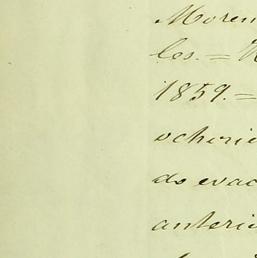 Moren
les. = 
1859. =
ochocie
do evac
anteri